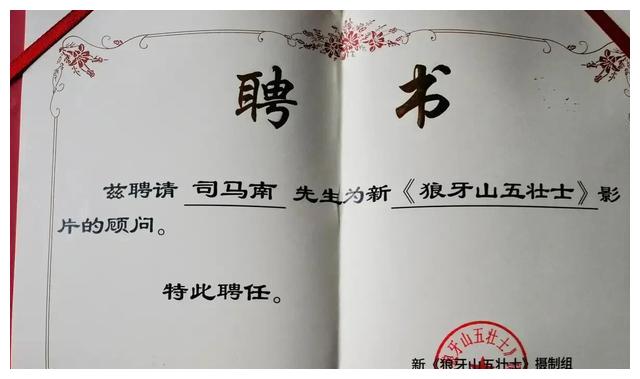 聘书
兹聘请 司马南 先生为新《狼牙山五壮士》影
片的顾问。
特此聘任。
新《狼牙山五壮士》摄制组
狼牙山五壮士》